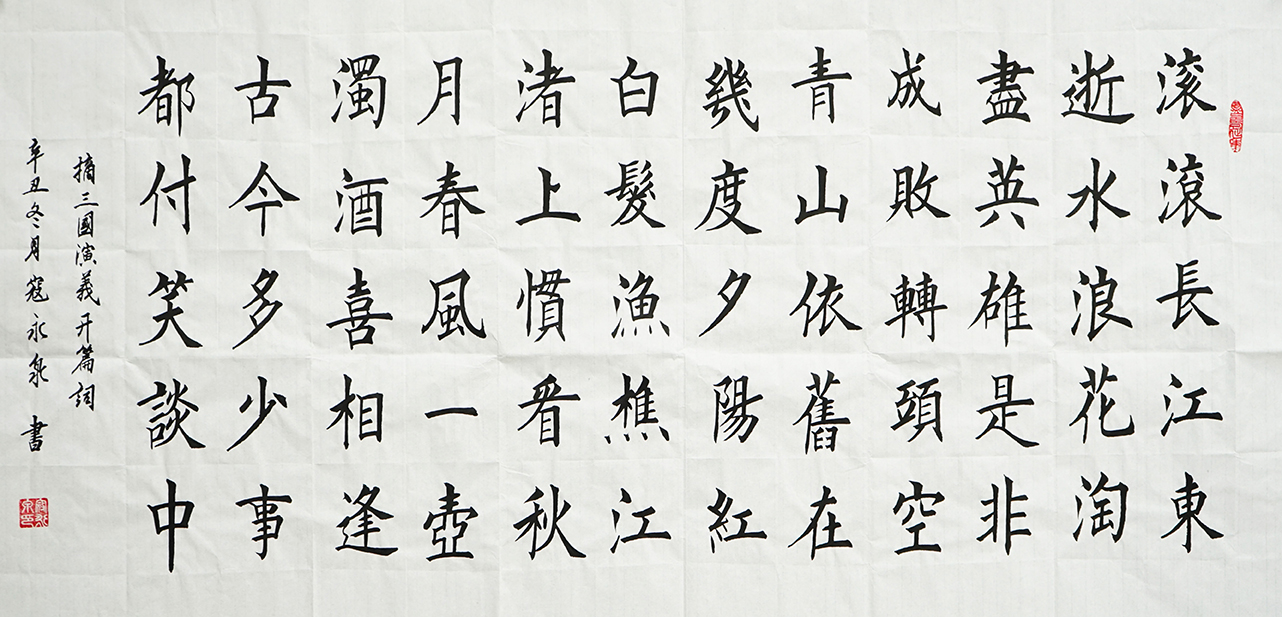 滚滾長江東
逝水浪花淘
盡英雄是非
成敗轉頭空
青山依舊在
幾度夕陽紅
白髮漁樵江
渚上慣看秋
月春風一壺
濁酒喜相逢
古今多少事
都付笑談中
摘三國演義开篇詞
辛丑冬月寇永泉 書